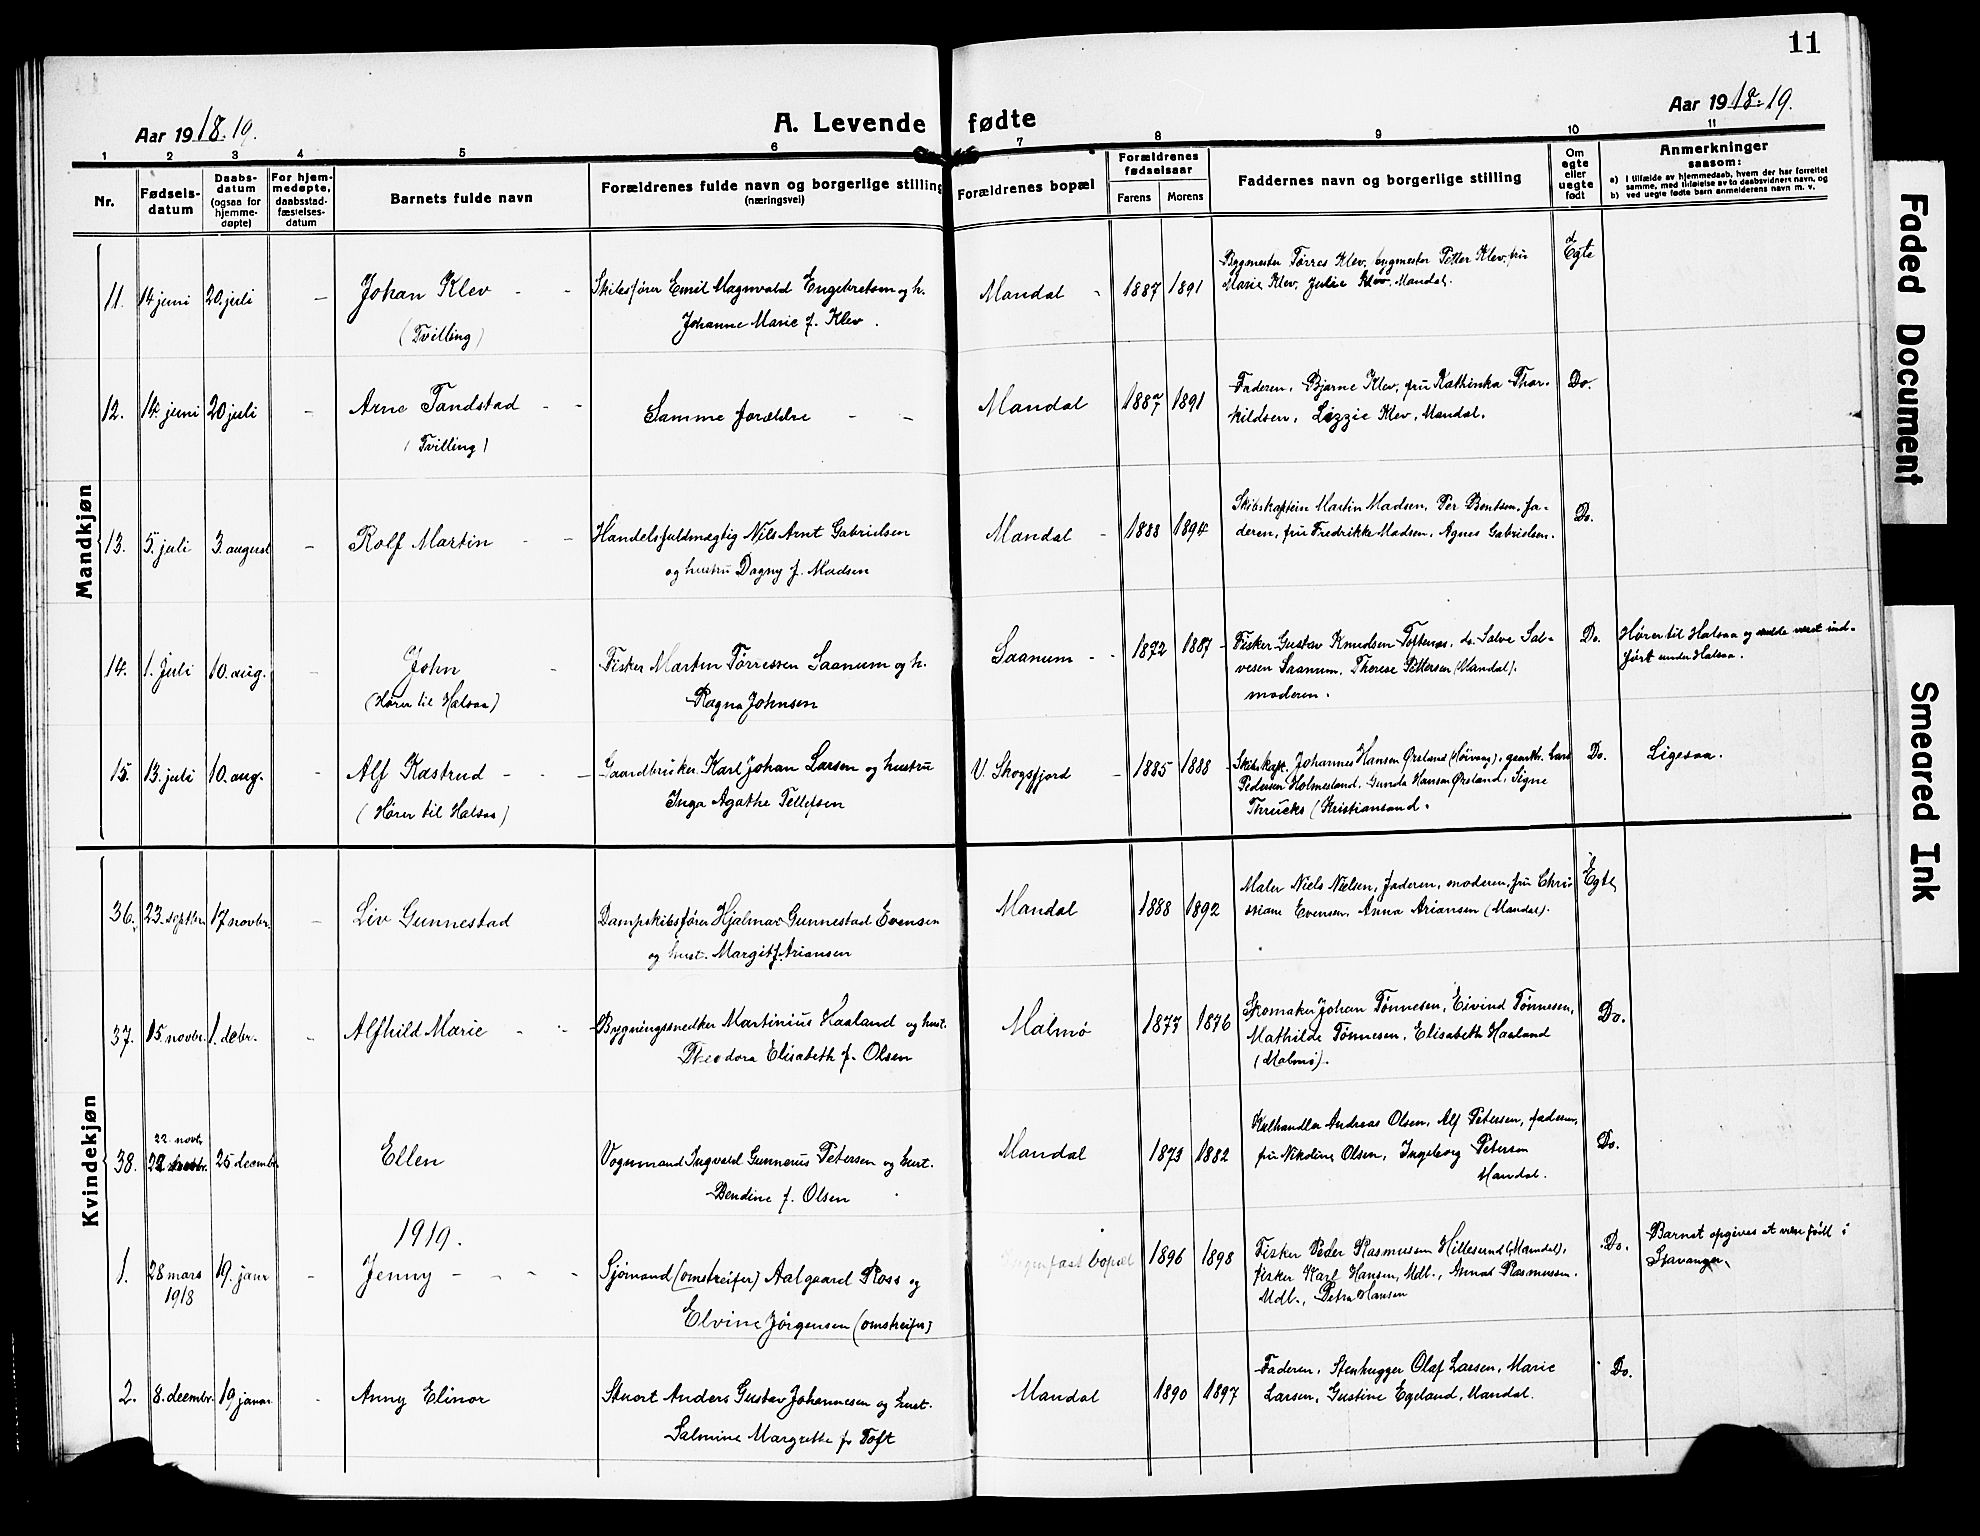 11
Aar 1918-19.
A. Levende fødte
Aar 1918-19.
1 2 3 4 5 6 7 8 9 10 11
Nr.
Fødsels-
datum
Daabs-
datum
(ogsaa for
hjemme-
døpte)
For hjem-
medøpte,
daabsstad-
fæstelses-
datum
Barnets fulde navn
Forældrenes fulde navn og borgerlige stilling
(næringsvei)
Forældrenes bopæl
Forældrenes
fødselsaar
Farens Morens
Faddernes navn og borgerlige stilling
Om
egte
eller
uegte
født
Anmerkninger
saasom:
a) I tilfælde av hjemmedaab, hvem der har forrettet
samme, med tilføielse av to daabsvidners navn, og
b) ved uegte fødte barn anmelderens navn m. v.
Mandkjøn
11. 14 juni 20. juli - Johan Klev - -
(Tvilling)
Skibsfører Emil Magnvald Engebretsen og h.
Johanne Marie f. Klev.
Mandal - 1887 1891
Bygmester Tørres Klev, bygmester Petter Klev, fru
Marie Klev, Julie Klev, Mandal.
Egte
12. 14. juni 20 juli - Arne Tandstad - -
(Tvilling)
Samme forældre - -
Mandal 1887 1891
Faderen, Bjarne Klev, fru Kathinka Thor-
kildsen, Lizzie Klev, Mandal.
Do.
13. 5. juli 3. august - Rolf Martin - -
Handelsfuldmægtig Nils Arnt Gabrielsen
og hustru Dagny f. Madsen
Mandal - 1888 1894
Skibskaptein Martin Madsen, Per Bentsen, fa-
deren, fru Fredrikke Madsen, Agnes Gabrielsen.
Do.
14. 1. juli 10. aug. - John -
(Hører til Halsaa)
Fisker Martin Tørressen Saanum og h.
Ragna Johnsen
Saanum - - 1872 1887
Fisker Gustav Knudsen Toftenes, do. Salve Sal-
vesen Saanum, Therese Pettersen (Mandal).
moderen.
Do.
Hører til Halsaa og skulde været ind-
ført under Halsaa.
15. 13. juli 10. aug. - Alf Kastrud - - -
(Hører til Halsaa)
Gaardbruker Karl Johan Larsen og hustru
Inga Agathe Tellefsen
V. Skogsfjord - 1885 1888
Skibskapt. Johannes Hansen Øreland (Høivaag), gaardbr. Lars
Pedersen Holmesland, Gunda Hansen Øresland, Signe
(Kristiansand.
Do.
Ligesaa.
Kvindekjøn
36. 23. septbr. 17 novbr. - Liv Gunnestad
Dampskibsfører Hjalmar Gunnestad Evensen
og hust. Margit f. Ariansen
Mandal 1888 1892
Maler Niels Nielsen, faderen, moderen, fru Chris-
tiane Evensen, Anna Ariansen (Mandal).
Egte
37. 15 novbr. 1. debr. - Alfhild Marie - -
Bygningssnedker Martinius Haaland og hust.
Theodora Elisabeth f. Olsen
Malmø 1877 1876
Skomaker Johan Tønnesen, Eivind Tønnesen,
Mathilde Tønnesen, Elisabeth Haaland
(Malmø).
Do.
38. 22. novbr. 25 decembr. Ellen
Vognmand Ingvald Gunnerius Petersen og hust.
Bendine f. Olsen
Mandal 1873 1882
Kulhandler Andreas Olsen, Alf Petersen, faderen,
fru Nikoline Olsen, Ingeborg Petersen
Mandal.
Do.
1919.
1. 28 mars
1918
19. janr - Jenny - - - -
Sjømand (omstreifer) Aalgaard Ross og
Elvine Jørgensen (omstreifer)
Ingen fast bopæl 1896 1898
Fisker Peder Rasmussen Hillesund (Mandal),
fisker Karl Hansen, Mdl., Anna Rasmussen.
Mdl., Petra Hansen
Do.
Barnet opgives at være født i
Stavanger.
2. 8. decembr. 19 januar - Anny Elinor
Stuert Anders Gustav Johannesen og hust.
Salmine Margrethe f. Toft
Mandal 1890 1897
Faderen, Stenhugger Olaf Larsen, Marie
Larsen, Gustine Egeland, Mandal.
Do.
Faded Document
Smeared Ink